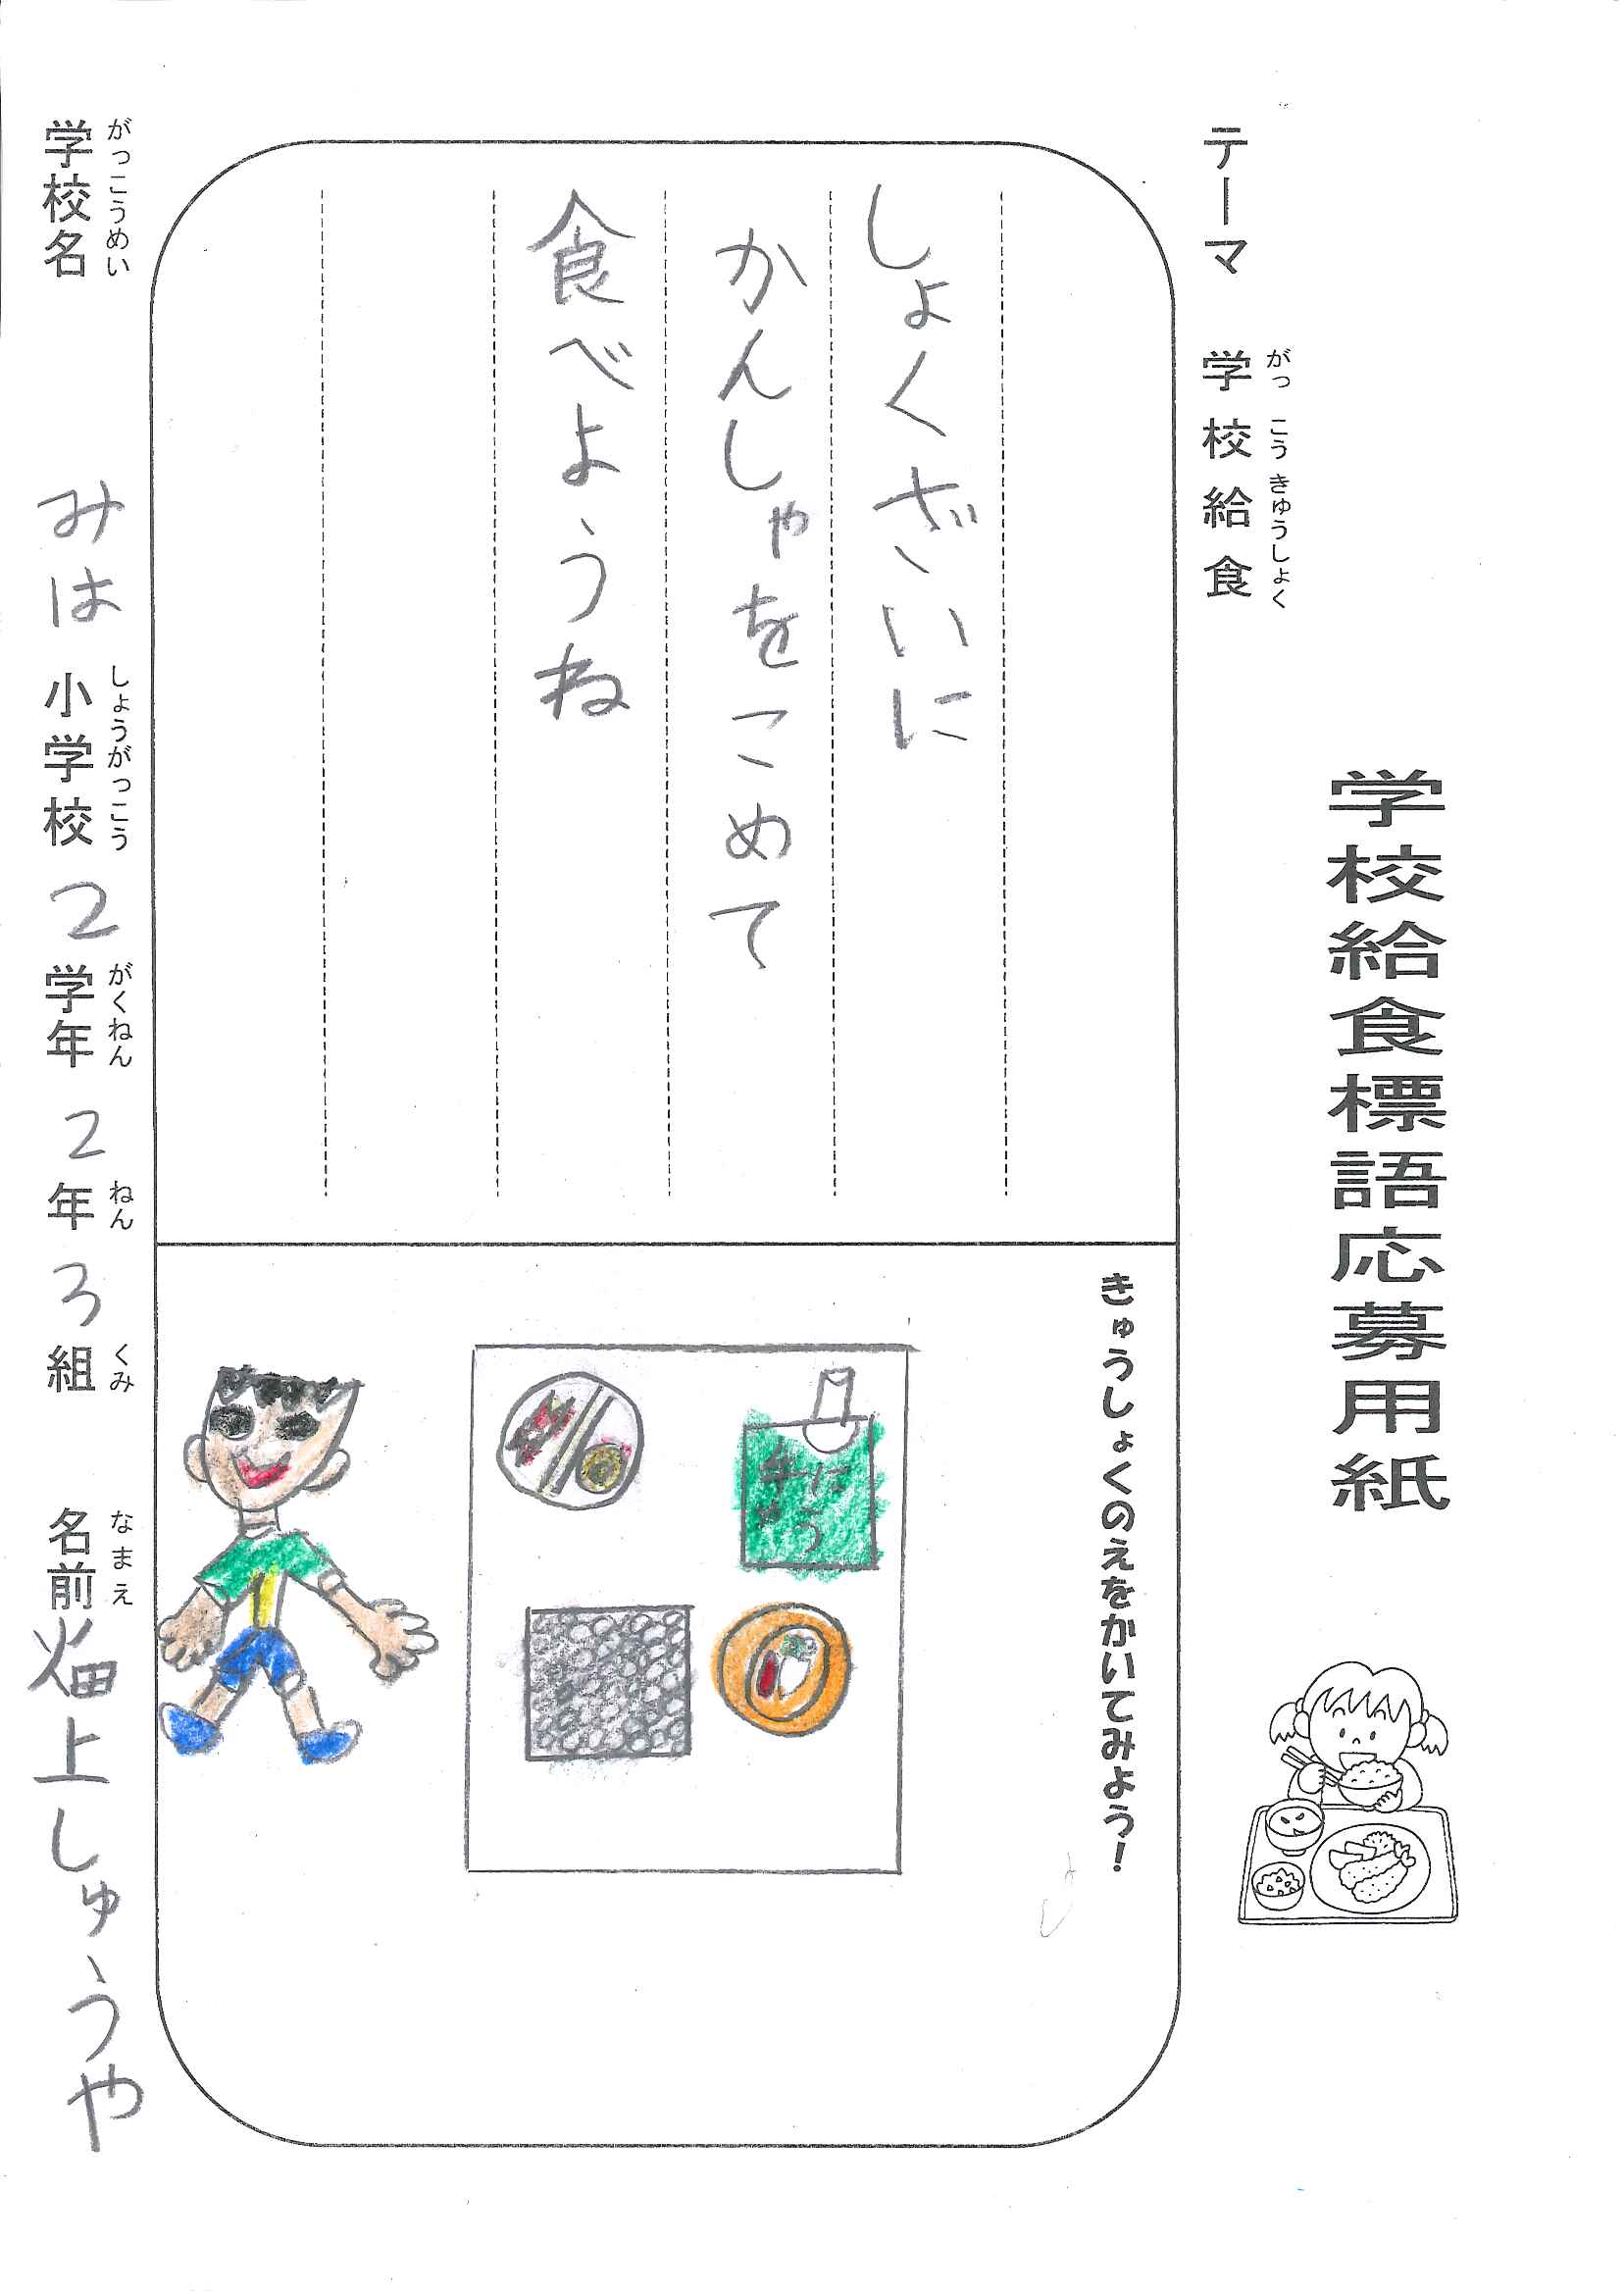 学校給食標語応募用紙
テーマ 学校給食
がっこうきゅうしょく
しょくざいに
かんしゃをこめて
食べようね
きゅうしょくのえをかいてみよう!
牛にゅう
学校名 みは 小学校 2 学年 2 年 3 組 名前 畑上しゅうや
がっこうめい しょうがっこう がくねん ねん くみ なまえ